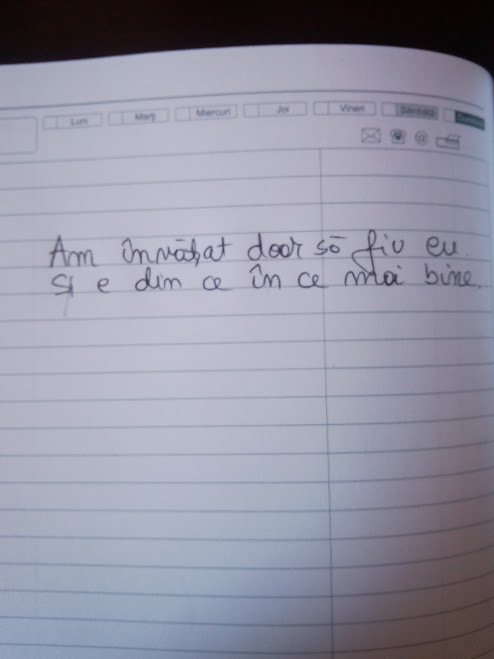 Luni Marți Miercuri Joi Vineri Sâmbătă Duminică
Am învățat doar să fiu eu.
Și e din ce în ce mai bine.